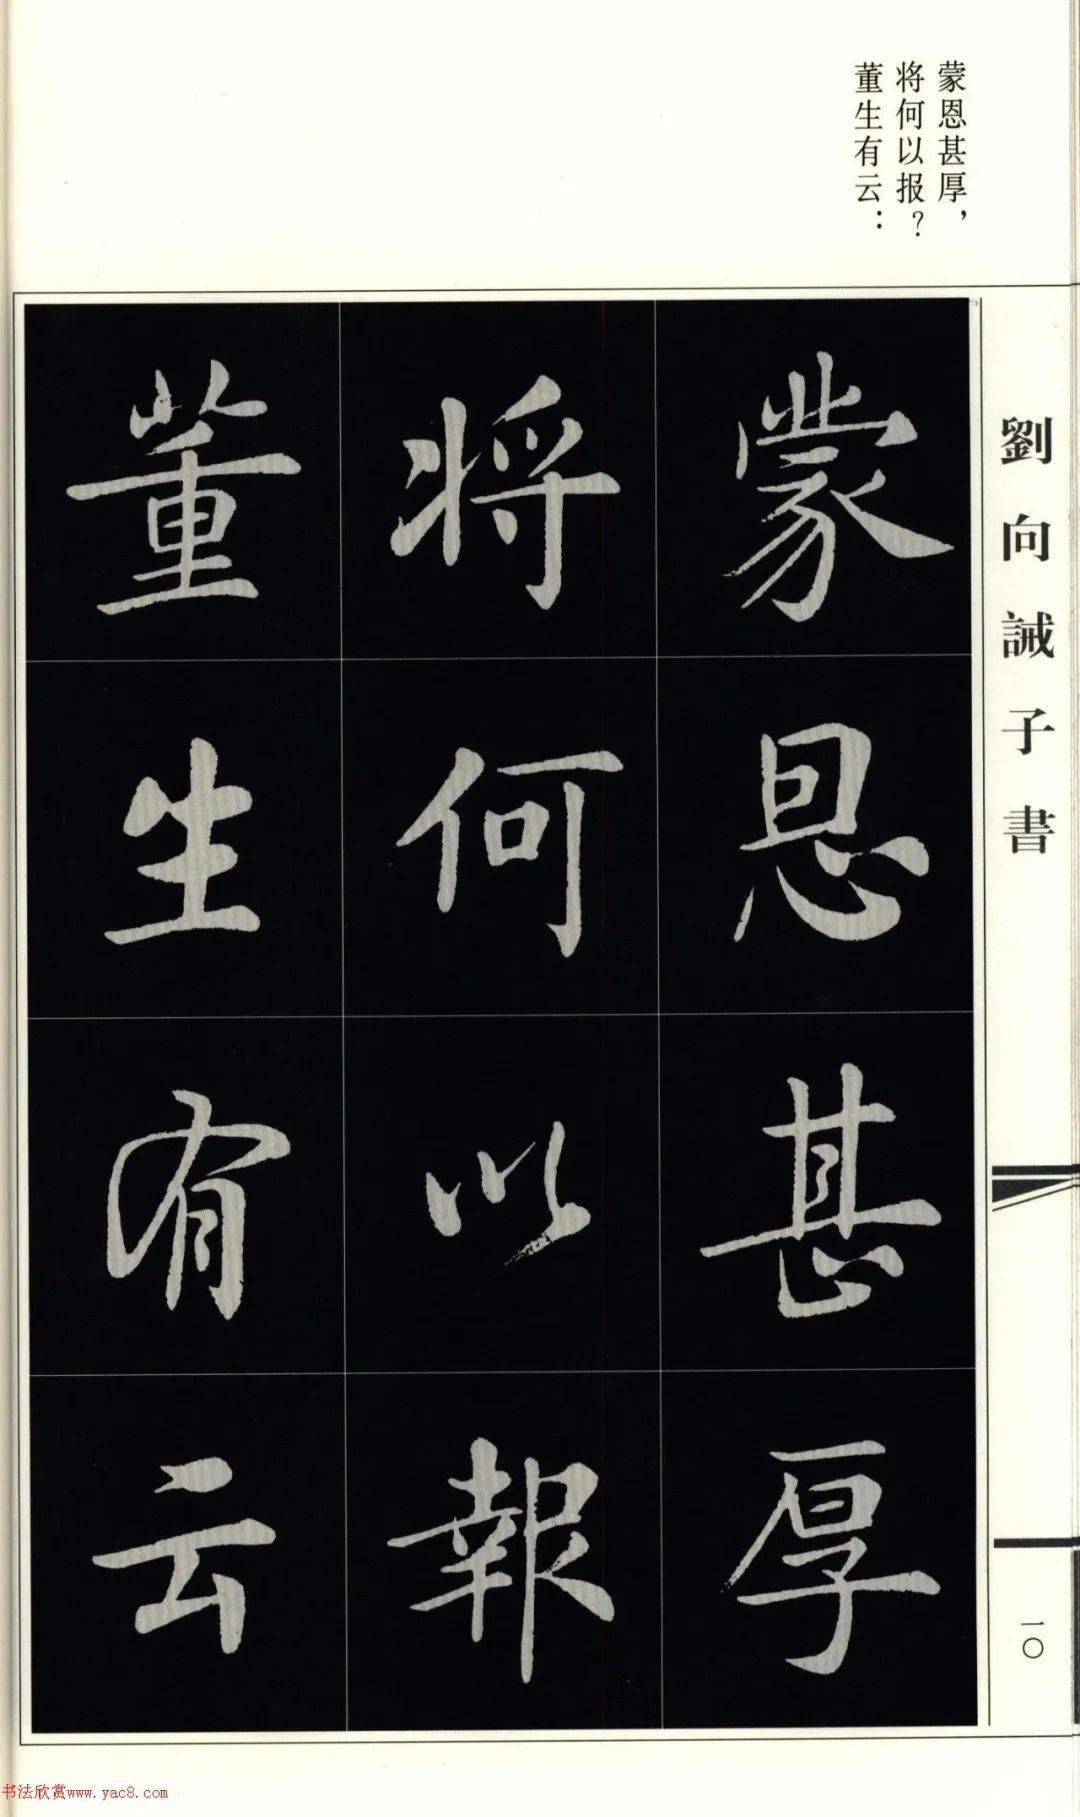 蒙恩甚厚，
将何以报？
董生有云：
蒙恩甚厚
将何以報
董生有云
劉向誡子書
一〇
书法欣赏www.yac8.com